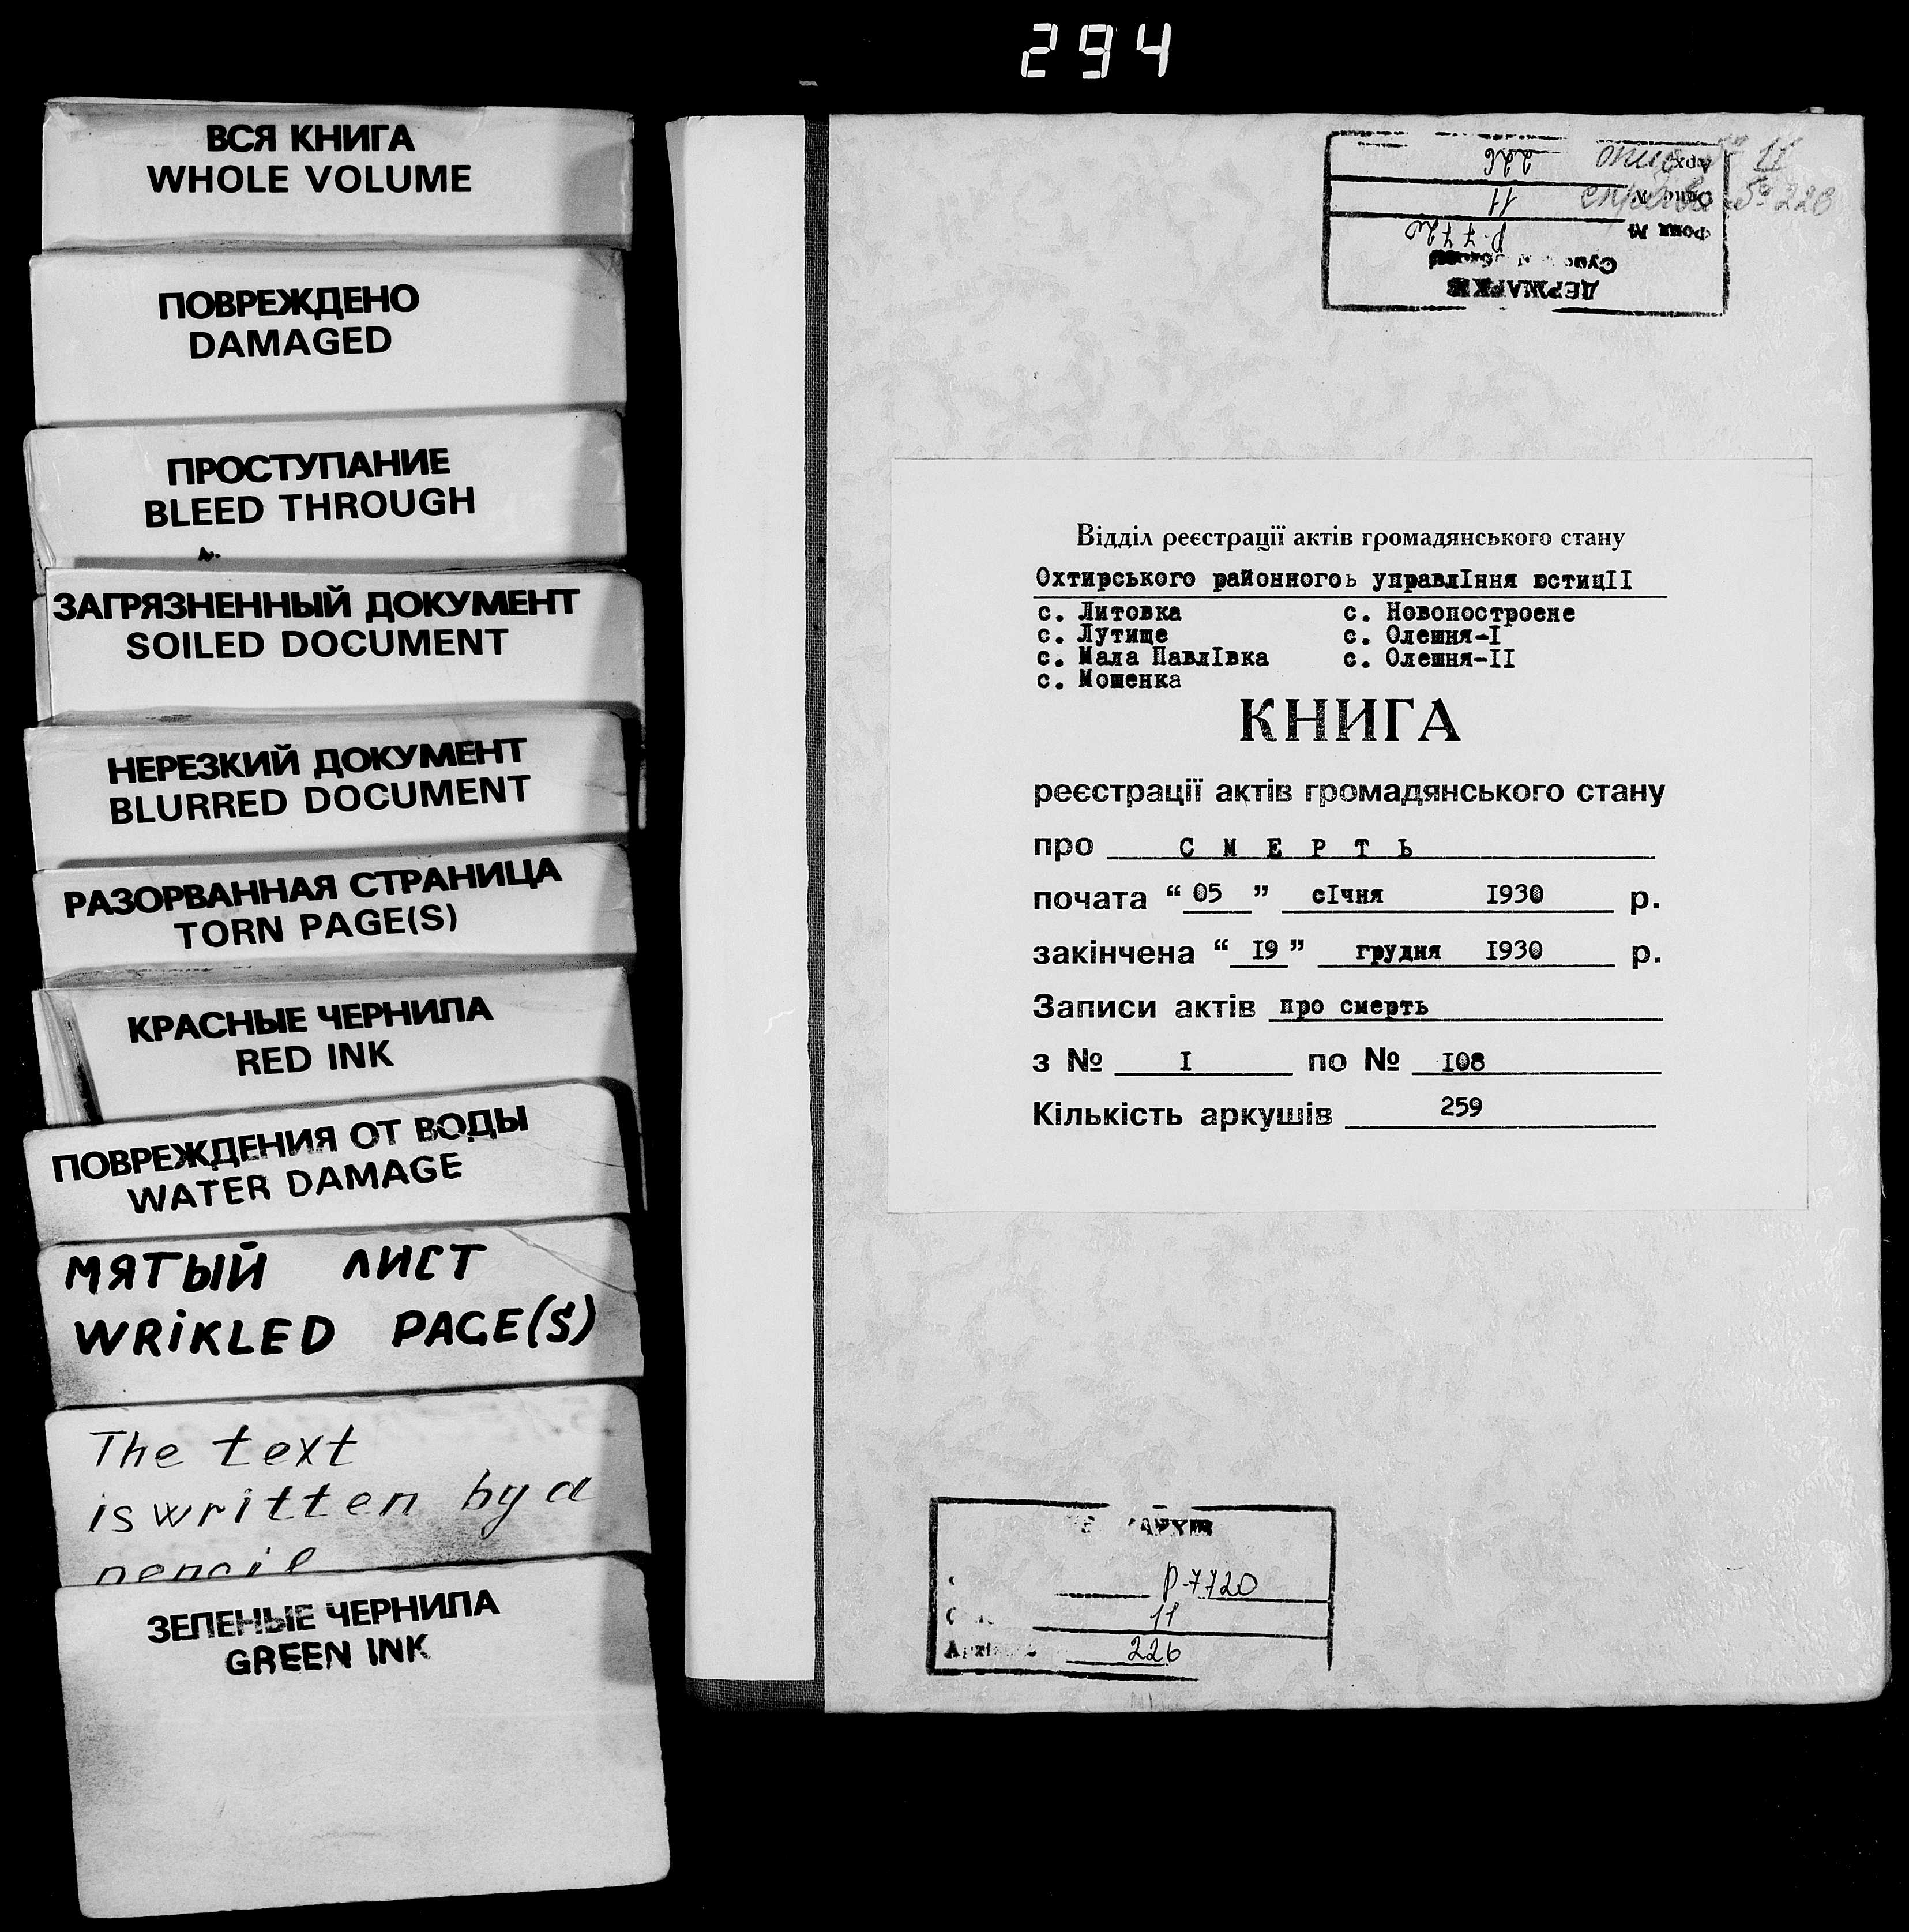 294
ВСЯ КНИГА
WHOLE VOLUME
ПОВРЕЖДЕНО
DAMAGED
ПРОСТУПАНИЕ
BLEED THROUGH
ЗАГРЯЗНЕННЫЙ ДОКУМЕНТ
SOILED DOCUMENT
НЕРЕЗКИЙ ДОКУМЕНТ
BLURRED DOCUMENT
РАЗОРВАННАЯ СТРАНИЦА
TORN PAGE(S)
КРАСНЫЕ ЧЕРНИЛА
RED INK
ПОВРЕЖДЕНИЯ ОТ ВОДЫ
WATER DAMAGE
МЯТЫЙ ЛИСТ
WRIKLED PAGE(S)
The text
is written by a
pencil
ЗЕЛЕНЫЕ ЧЕРНИЛА
GREEN INK
опис № 11
справа № 226
ДЕРЖАРХІВ
Фонд № Р-7720
Опис № 11
226
Відділ реєстрації актів громадянського стану
Охтирського районногоь управлІння юстицІІ
с. Литовка с. Новопостроене
с. Лутище с. Олешня-І
с. Мала ПавлІвка с. Олешня-ІІ
с. Мошенка
КНИГА
реєстрації актів громадянського стану
про С М Е Р Т Ь
почата “ 05 ” сІчня І930 р.
закінчена “ І9 ” грудня І930 р.
Записи актів про смерть
з № І по № І08
Кількість аркушів 259
Р-7720
11
226